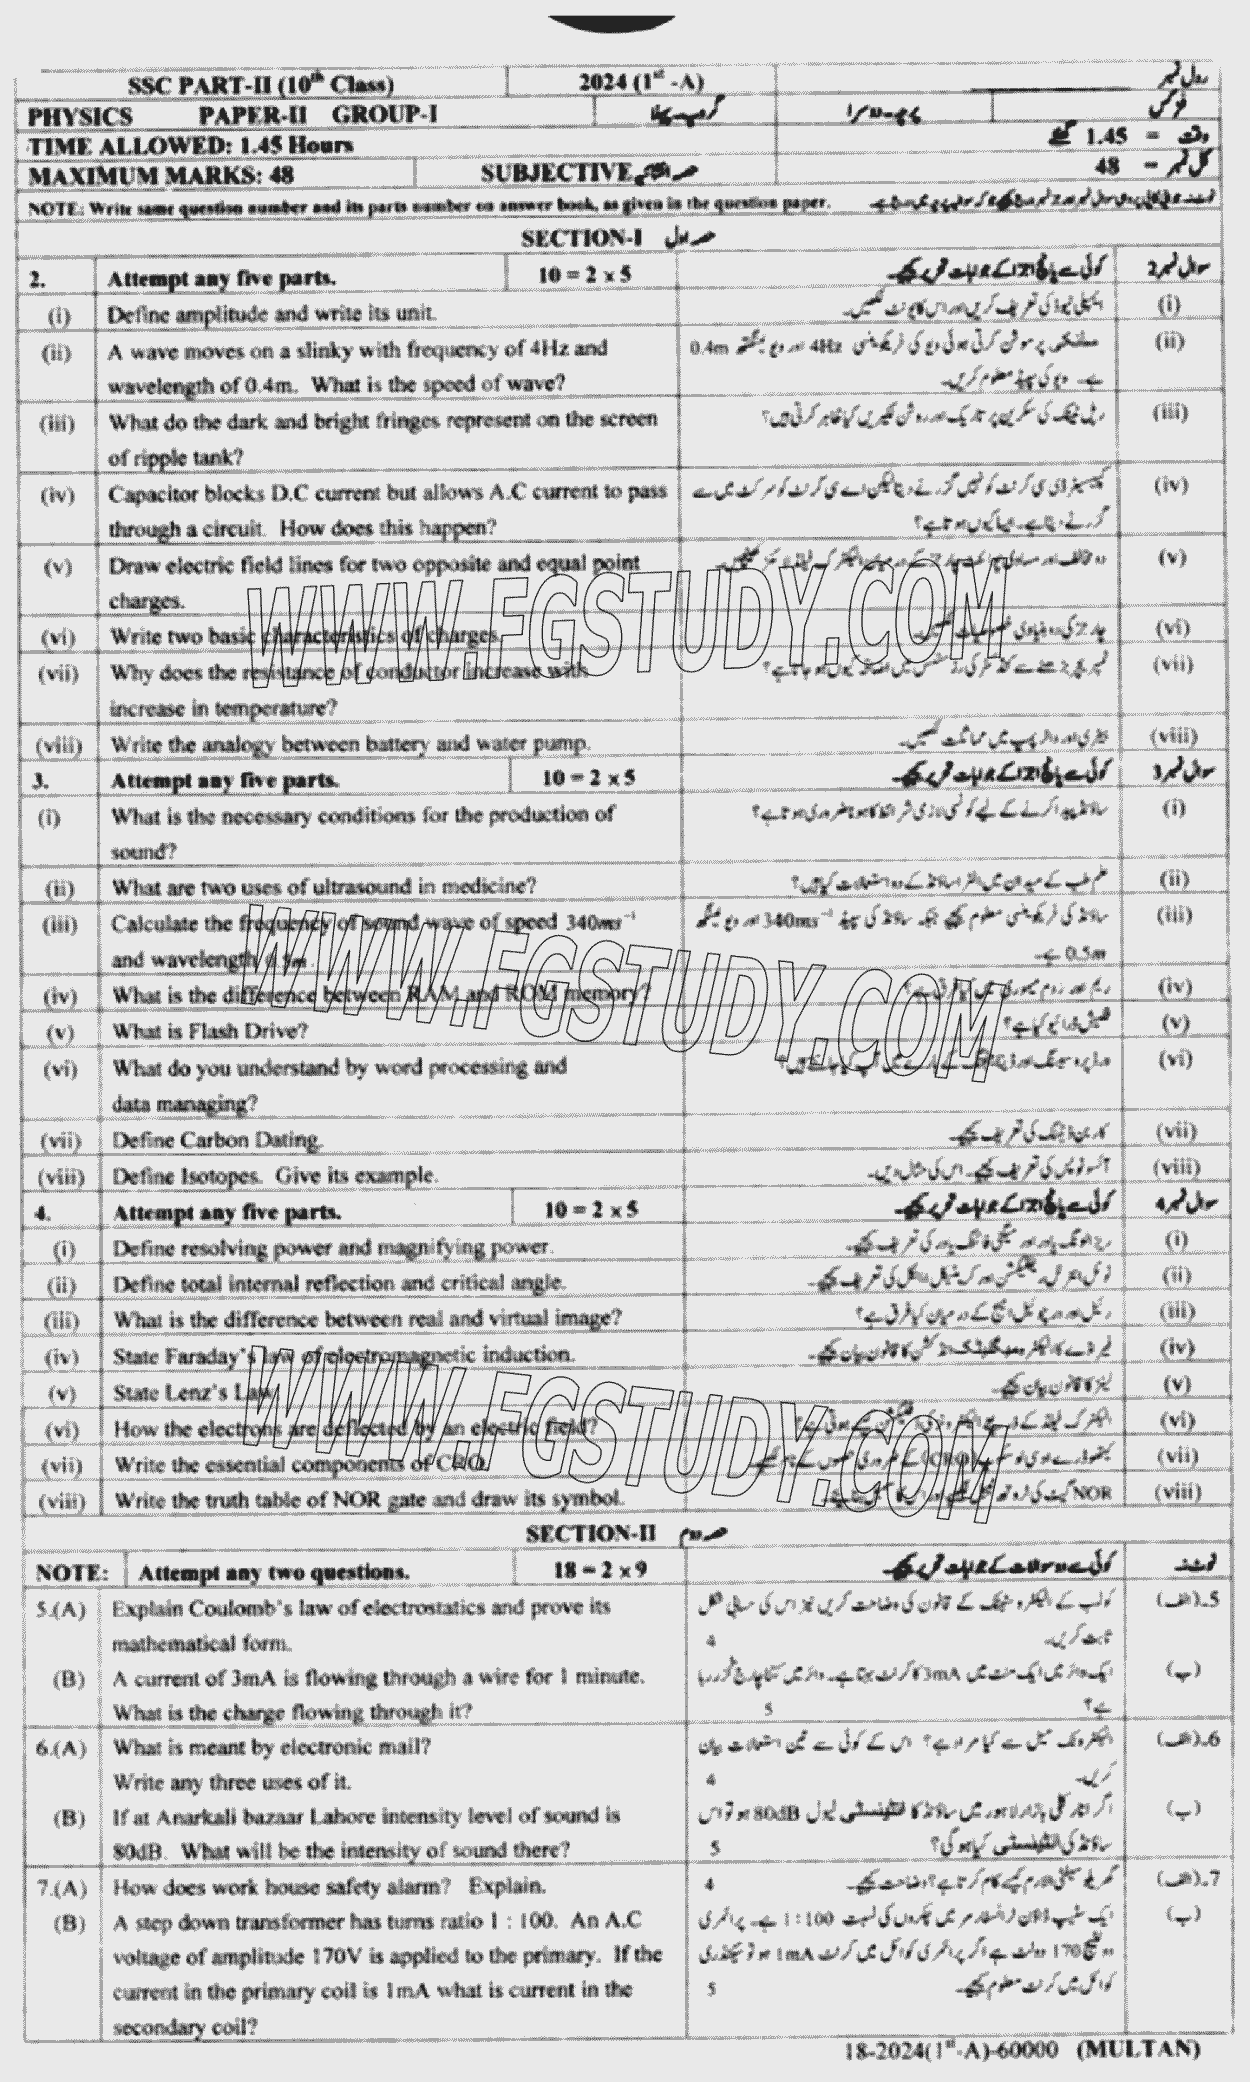 SSC PART-II (10th Class) 2024 (1st -A) رول نمبر
PHYSICS PAPER-II GROUP-I گروپ۔پہلا پرچہ۔دوسرا فزکس
TIME ALLOWED: 1.45 Hours وقت = 1.45 گھنٹے
MAXIMUM MARKS: 48 SUBJECTIVE حصہ انشائیہ کل نمبر = 48
NOTE: Write same question number and its parts number on answer book, as given in the question paper.
SECTION-I حصہ اول
2. Attempt any five parts. 10 = 2 x 5 کوئی سے پانچ اجزا کے جوابات تحریر کیجیے۔ سوال نمبر 2
(i) Define amplitude and write its unit. ایمپلی ٹیوڈ کی تعریف کریں اور اس کا یونٹ لکھیں۔ (i)
(ii) A wave moves on a slinky with frequency of 4Hz and سلنکی پر موشن کرتی ہوئی ویو کی فریکوئنسی 4Hz اور ویو لینگتھ 0.4m (ii)
wavelength of 0.4m. What is the speed of wave? ہے۔ ویو کی سپیڈ معلوم کریں۔
(iii) What do the dark and bright fringes represent on the screen رپل ٹینک کی سکرین پر تاریک اور روشن لکیریں کیا ظاہر کرتی ہیں؟ (iii)
of ripple tank?
(iv) Capacitor blocks D.C current but allows A.C current to pass کپیسیٹر ڈی سی کرنٹ کو نہیں گزرنے دیتا لیکن اے سی کرنٹ کو سرکٹ میں سے (iv)
through a circuit. How does this happen? گزرنے دیتا ہے۔ ایسا کیوں ہوتا ہے؟
(v) Draw electric field lines for two opposite and equal point (v)
charges.
(vi) Write two basic characteristics of charges. (vi)
(vii) Why does the resistance of conductor increase with (vii)
increase in temperature?
(viii) Write the analogy between battery and water pump. بیٹری اور واٹر پمپ میں مماثلت لکھیں۔ (viii)
3. Attempt any five parts. 10 = 2 x 5 کوئی سے پانچ اجزا کے جوابات تحریر کیجیے۔ سوال نمبر 3
(i) What is the necessary conditions for the production of ساؤنڈ پیدا کرنے کے لیے کونسی لازمی شرائط کا ہونا ضروری ہوتا ہے؟ (i)
sound?
(ii) What are two uses of ultrasound in medicine? علم طب کے میدان میں الٹراساؤنڈ کے دو استعمالات کیا ہیں؟ (ii)
(iii) Calculate the frequency of sound wave of speed 340ms⁻¹ ساؤنڈ کی فریکوئنسی معلوم کیجیے جبکہ ساؤنڈ کی سپیڈ 340ms⁻¹ اور ویو لینگتھ (iii)
and wavelength 0.5m. 0.5m ہے۔
(iv) What is the difference between RAM and ROM memory? (iv)
(v) What is Flash Drive? فلیش ڈرائیو کیا ہے؟ (v)
(vi) What do you understand by word processing and (vi)
data managing?
(vii) Define Carbon Dating. کاربن ڈیٹنگ کی تعریف کیجیے۔ (vii)
(viii) Define Isotopes. Give its example. آئسوٹوپس کی تعریف کیجیے۔ اس کی مثال دیں۔ (viii)
4. Attempt any five parts. 10 = 2 x 5 کوئی سے پانچ اجزا کے جوابات تحریر کیجیے۔ سوال نمبر 4
(i) Define resolving power and magnifying power. ریزالونگ پاور اور میگنی فائنگ پاور کی تعریف کیجیے۔ (i)
(ii) Define total internal reflection and critical angle. ٹوٹل انٹرنل ریفلیکشن اور کریٹیکل اینگل کی تعریف کیجیے۔ (ii)
(iii) What is the difference between real and virtual image? رئیل اور ورچوئل امیج کے درمیان کیا فرق ہے؟ (iii)
(iv) State Faraday's law of electromagnetic induction. فیراڈے کا الیکٹرومیگنیٹک انڈکشن کا قانون بیان کیجیے۔ (iv)
(v) State Lenz's Law. لینز کا قانون بیان کیجیے۔ (v)
(vi) How the electrons are deflected by an electric field? (vi)
(vii) Write the essential components of CRO. (vii)
(viii) Write the truth table of NOR gate and draw its symbol. (viii)
SECTION-II حصہ دوم
NOTE: Attempt any two questions. 18 = 2 x 9 کوئی سے دو سوالات کے جوابات تحریر کیجیے۔ نوٹ:
5.(A) Explain Coulomb's law of electrostatics and prove its کولمب کے الیکٹروسٹیٹک کے قانون کی وضاحت کریں نیز اس کی حسابی شکل 5۔(الف)
mathematical form. ثابت کریں۔ 4
(B) A current of 3mA is flowing through a wire for 1 minute. ایک وائر میں ایک منٹ میں 3mA کا کرنٹ بہتا ہے۔ وائر میں کتنا چارج گزر رہا (ب)
What is the charge flowing through it? ہے؟ 5
6.(A) What is meant by electronic mail? الیکٹرونک میل سے کیا مراد ہے؟ اس کے کوئی سے تین استعمالات بیان 6۔(الف)
Write any three uses of it. کریں۔ 4
(B) If at Anarkali bazaar Lahore intensity level of sound is اگر انارکلی بازار لاہور میں ساؤنڈ کا انٹینسٹی لیول 80dB ہو تو اس (ب)
80dB. What will be the intensity of sound there? ساؤنڈ کی انٹینسٹی کیا ہوگی؟ 5
7.(A) How does work house safety alarm? Explain. گھریلو سیفٹی الارم کیسے کام کرتا ہے؟ وضاحت کیجیے۔ 4 7۔(الف)
(B) A step down transformer has turns ratio 1 : 100. An A.C ایک سٹیپ ڈاؤن ٹرانسفارمر میں چکروں کی نسبت 1:100 ہے۔ پرائمری (ب)
voltage of amplitude 170V is applied to the primary. If the وولٹیج 170 وولٹ ہے اگر پرائمری کوائل میں کرنٹ 1mA ہو تو سیکنڈری
current in the primary coil is 1mA what is current in the کوائل میں کرنٹ معلوم کیجیے۔ 5
secondary coil?
18-2024(1st-A)-60000 (MULTAN)
WWW.FGSTUDY.COM
WWW.FGSTUDY.COM
WWW.FGSTUDY.COM